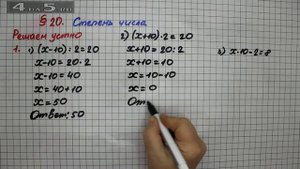 4 на 5.ru
§ 20. Степень числа
Решаем устно
1. 1) (x-10):2=20
x-10=20·2
x-10=40
x=40+10
x=50
Ответ: 50
2) (x+10)·2=20
x+10=20:2
x+10=10
x=10-10
x=0
От
3) x·10-2=8